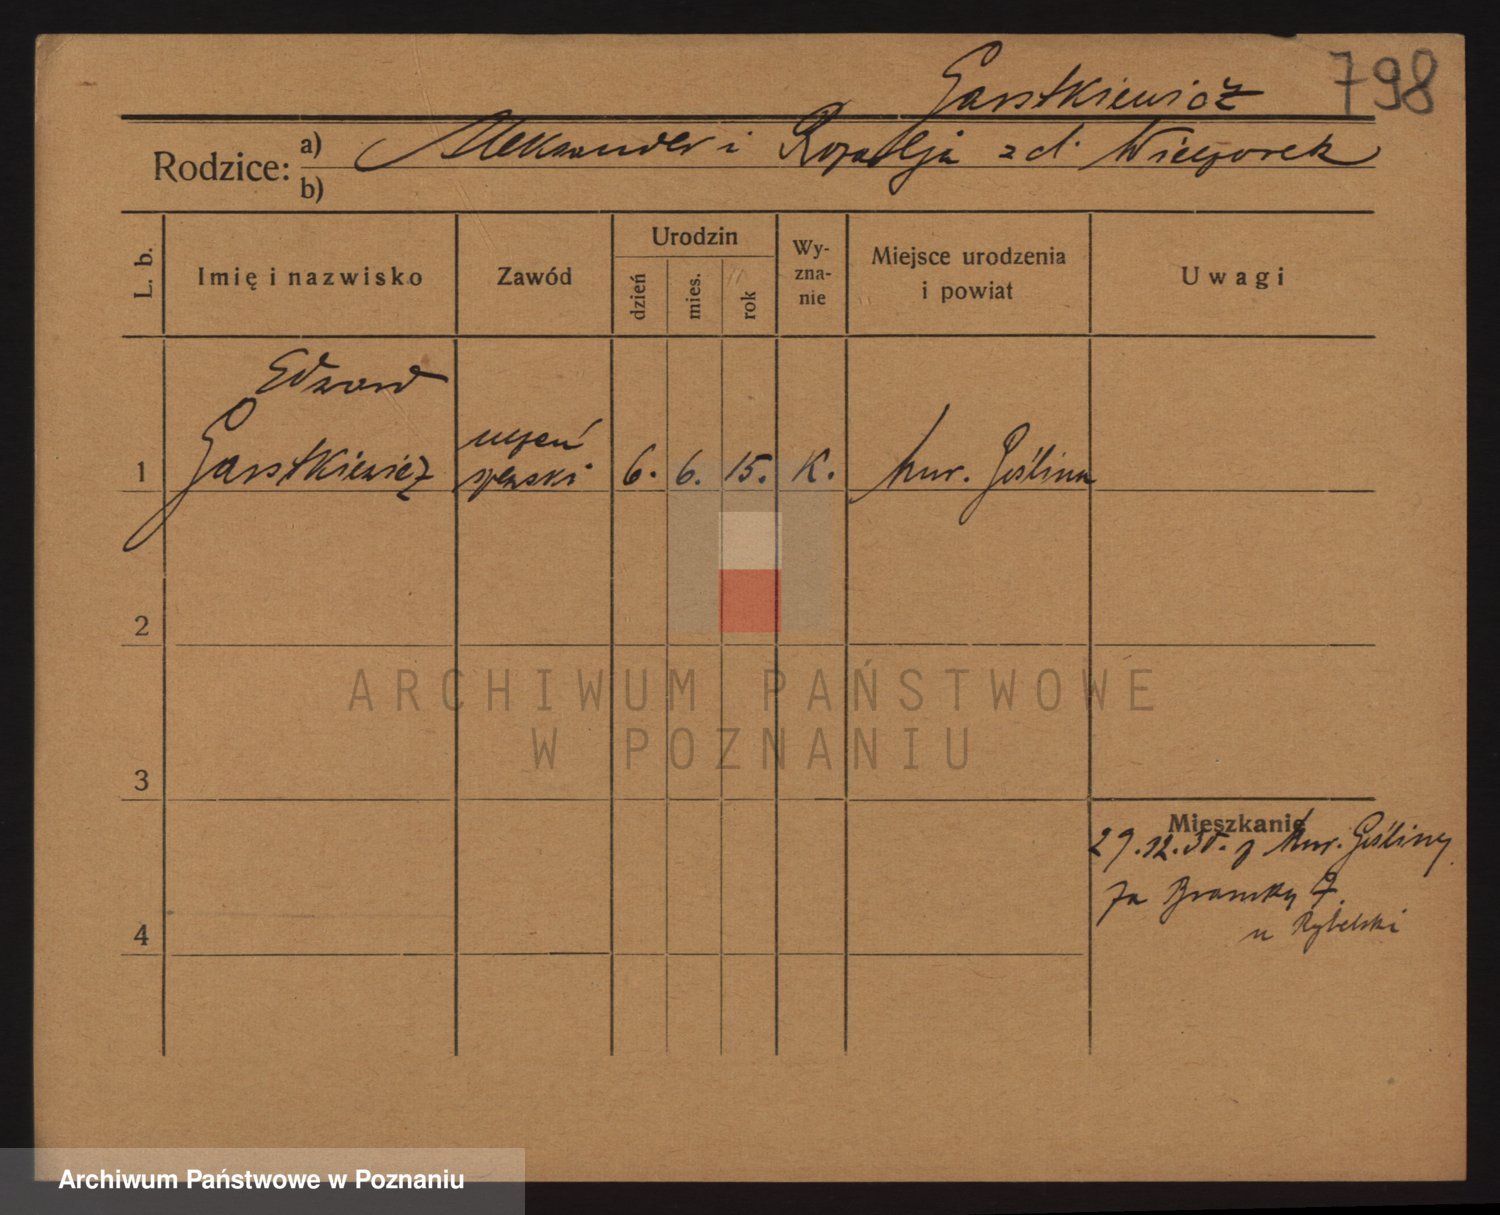 Garstkiewicz 798
Rodzice: a) Aleksander i Rozalja z d. Wieczorek
b)
L. b.
Imię i nazwisko
Zawód
Urodzin
dzień
mies.
rok
Wy-
zna-
nie
Miejsce urodzenia
i powiat
Uwagi
Edward
uczeń
1 Garstkiewicz 6. 6. 15. K. Mur. Goślina
2
ARCHIWUM PAŃSTWOWE
W POZNANIU
3
Mieszkanie
29.12.30. z Mur. Gośliny
Za Bramką 7.
u Rybelski
4
Archiwum Państwowe w Poznaniu